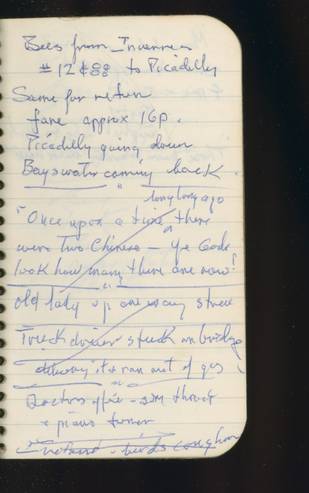 Bus from Inverness
#12 & 88 to Picadilly
Same for return
fare approx 16p.
Picadilly going down
Bayswater coming back.
long long ago
"Once upon a time there
were two Chinese — Ye Gods
look how many there are now!
old lady up one way street
Truck driver stuck on bridge
& ran out of gas
Doctors office - sore throat
+ piano tuner